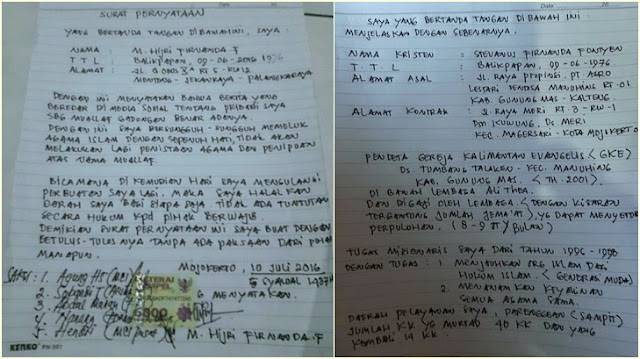 SURAT PERNYATAAN
YANG BERTANDA TANGAN DIBAWAH INI, SAYA :
NAMA : M. HIJRI FIRNANDA. F
T T L : BALIKPAPAN, 09-06-2016 1976
ALAMAT : JL. G OBOS RT 5 - RW 12
MENTENG - JEKANRAYA - PALANGKARAYA
DENGAN INI MENYATAKAN BAHWA BERITA YANG
BEREDAR DI MEDIA SOSIAL TENTANG PRIBADI SAYA
SBG MUALLAF GADUNGAN BENAR ADANYA.
DENGAN INI SAYA BERSUNGGUH-SUNGGUH MEMELUK
AGAMA ISLAM DENGAN SEPENUH HATI, TIDAK AKAN
MELAKUKAN LAGI PENISTAAN AGAMA DAN PENIPUAN
ATAS NAMA MUALLAF.
BICAMANA DI KEMUDIAN HARI SAYA MENGULANGI
PERBUATAN SAYA LAGI, MAKA SAYA HALALKAN
DARAH SAYA BAGI SIAPA SAJA TIDAK ADA TUNTUTAN
SECARA HUKUM KPD PIHAK BERWAJIB.
DEMIKIAN SURAT PERNYATAAN INI SAYA BUAT DENGAN
BETULUS-TULUSNYA TANPA ADA PAKSAAN DARI PIHAK
MANAPUN.
MOJOKERTO, 10 JULI 2016
5 SYAWAL 1437 H
SAKSI : 1. AGUNG HS (MCI)
YG MENYATAKAN
2.
3.
4.
5. HENDRI (MCI PUSAT)
M. HIJRI FIRNANDA. F
KENKO
SAYA YANG BERTANDA TANGAN DI BAWAH INI :
MENJELASKAN DENGAN SEBENARNYA.
NAMA KRISTEN : STEVANUS FIRNANDA FONYEN
T. T. L : BALIKPAPAN, 09-06-1976
ALAMAT ASAL : JL. RAYA PROPINSI, PT. AGRO
LESTARI TENDSA MANUHING RT-01
KAB. GUNUNG MAS - KALTENG.
ALAMAT KONTRAK : JL. RAYA MERI RT-3 - RW-1
DSN KUWUNG, DS. MERI
KEC. MAGERSARI - KOTA MOJOKERTO
PENDETA GEREJA KALIMANTAN EVANGELIS (GKE)
DS. TUMBANG TALAKEN - KEC. MANUHING
KAB. GUNUNG MAS. (TH - 2001).
DI BAWAH LEMBAGA ALITHEA.
DAN DIGAJI OLEH LEMBAGA (DENGAN KISARAN
TERGANTUNG JUMLAH JEMA'AT), YG DAPAT MENYETOR
PERPULOHAN. (8-9 JT/BULAN)
TUGAS MISIONARIS SAYA DARI TAHUN 1996 - 1998
DENGAN TUGAS : 1. MENJAUHKAN ORG ISLAM DARI
HUKUM ISLAM. (GENERASI MUDA)
2. MENANAMKAN KEYAKINAN
SEMUA AGAMA SAMA.
DAERAH PELAYANAN SAYA, PARENGGEAN (SAMPIT)
JUMLAH KK YG MURTAD 40 KK DAN YANG
KEMBALI 14 KK.